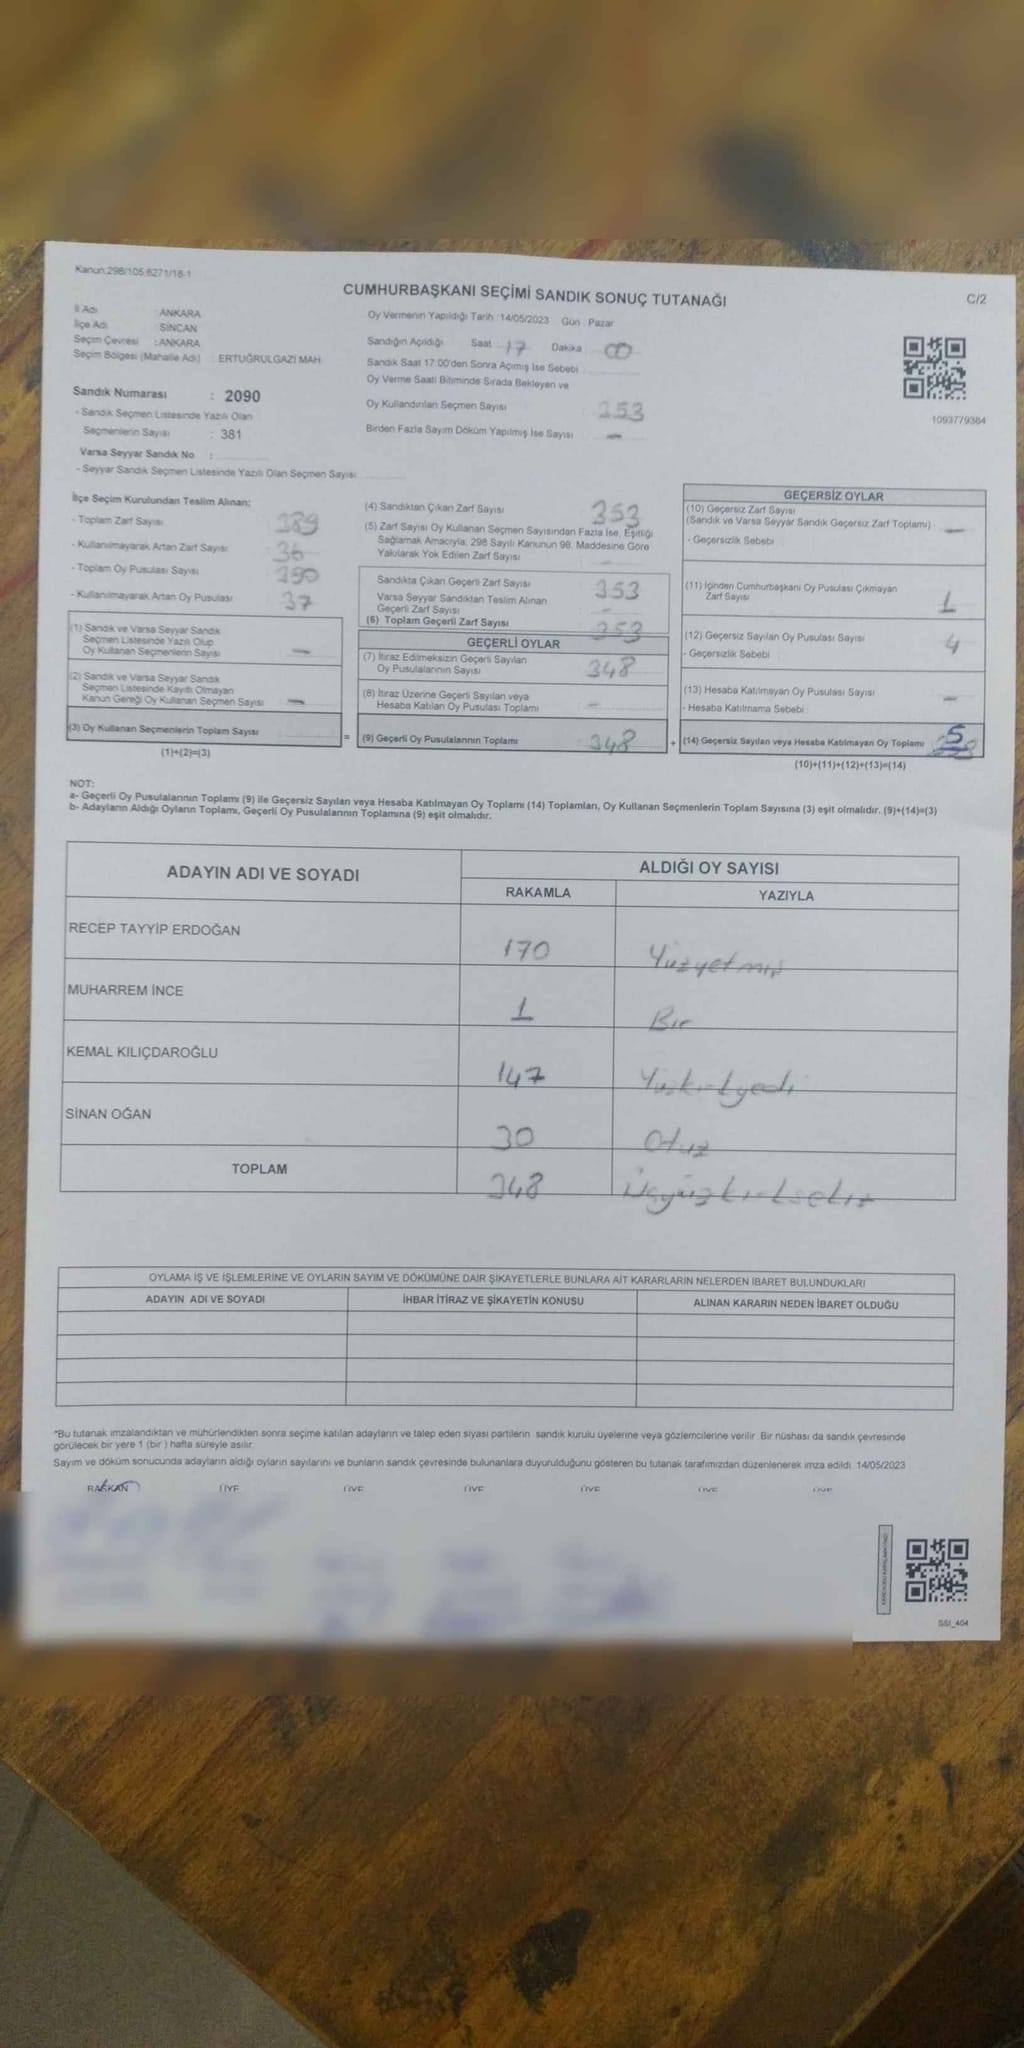 Kanun:298/105,6271/18-1
CUMHURBAŞKANI SEÇİMİ SANDIK SONUÇ TUTANAĞI
C/2
İl Adı : ANKARA
İlçe Adı : SİNCAN
Seçim Çevresi : ANKARA
Seçim Bölgesi (Mahalle Adı) : ERTUĞRULGAZİ MAH
Oy Vermenin Yapıldığı Tarih :14/05/2023 Gün : Pazar
Sandığın Açıldığı Saat 17 Dakika 00
Sandık Saat 17:00'den Sonra Açmış İse Sebebi
Oy Verme Saati Bitiminde Sırada Bekleyen ve
Oy Kullandırılan Seçmen Sayısı : 353
Birden Fazla Sayım Döküm Yapılmış İse Sayısı : —
1093779384
Sandık Numarası : 2090
- Sandık Seçmen Listesinde Yazılı Olan
Seçmenlerin Sayısı : 381
Varsa Seyyar Sandık No :
- Seyyar Sandık Seçmen Listesinde Yazılı Olan Seçmen Sayısı
İlçe Seçim Kurulundan Teslim Alınan;
- Toplam Zarf Sayısı 389
- Kullanılmayarak Artan Zarf Sayısı 36
- Toplam Oy Pusulası Sayısı 390
- Kullanılmayarak Artan Oy Pusulası 37
(1) Sandık ve Varsa Seyyar Sandık
Seçmen Listesinde Yazılı Olup
Oy Kullanan Seçmenlerin Sayısı —
(2) Sandık ve Varsa Seyyar Sandık
Seçmen Listesinde Kayıtlı Olmayan
Kanun Gereği Oy Kullanan Seçmen Sayısı —
(3) Oy Kullanan Seçmenlerin Toplam Sayısı
(1)+(2)=(3)
(4) Sandıktan Çıkan Zarf Sayısı 353
(5) Zarf Sayısı Oy Kullanan Seçmen Sayısından Fazla İse, Eşitliği
Sağlamak Amacıyla, 298 Sayılı Kanunun 98. Maddesine Göre
Yakılarak Yok Edilen Zarf Sayısı —
Sandıkta Çıkan Geçerli Zarf Sayısı 353
Varsa Seyyar Sandıktan Teslim Alınan
Geçerli Zarf Sayısı —
(6) Toplam Geçerli Zarf Sayısı 353
GEÇERLİ OYLAR
(7) İtiraz Edilmeksizin Geçerli Sayılan
Oy Pusulalarının Sayısı 348
(8) İtiraz Üzerine Geçerli Sayılan veya
Hesaba Katılan Oy Pusulası Toplamı —
= (9) Geçerli Oy Pusulalarının Toplamı 348
GEÇERSİZ OYLAR
(10) Geçersiz Zarf Sayısı
(Sandık ve Varsa Seyyar Sandık Geçersiz Zarf Toplamı) —
- Geçersizlik Sebebi
(11) İçinden Cumhurbaşkanı Oy Pusulası Çıkmayan
Zarf Sayısı 1
(12) Geçersiz Sayılan Oy Pusulası Sayısı 4
- Geçersizlik Sebebi
(13) Hesaba Katılmayan Oy Pusulası Sayısı —
- Hesaba Katılmama Sebebi
+ (14) Geçersiz Sayılan veya Hesaba Katılmayan Oy Toplamı 5
(10)+(11)+(12)+(13)=(14)
NOT:
a- Geçerli Oy Pusulalarının Toplamı (9) ile Geçersiz Sayılan veya Hesaba Katılmayan Oy Toplamı (14) Toplamları, Oy Kullanan Seçmenlerin Toplam Sayısına (3) eşit olmalıdır. (9)+(14)=(3)
b- Adayların Aldığı Oyların Toplamı, Geçerli Oy Pusulalarının Toplamına (9) eşit olmalıdır.
ADAYIN ADI VE SOYADI ALDIĞI OY SAYISI
RAKAMLA YAZIYLA
RECEP TAYYİP ERDOĞAN 170 Yüzyetmiş
MUHARREM İNCE 1 Bir
KEMAL KILIÇDAROĞLU 147 Yüzkırkyedi
SİNAN OĞAN 30 Otuz
TOPLAM 348 Üçyüzkırksekiz
OYLAMA İŞ VE İŞLEMLERİNE VE OYLARIN SAYIM VE DÖKÜMÜNE DAİR ŞİKAYETLERLE BUNLARA AİT KARARLARIN NELERDEN İBARET BULUNDUKLARI
ADAYIN ADI VE SOYADI İHBAR İTİRAZ VE ŞİKAYETİN KONUSU ALINAN KARARIN NEDEN İBARET OLDUĞU
*Bu tutanak imzalandıktan ve mühürlendikten sonra seçime katılan adayların ve talep eden siyasi partilerin sandık kurulu üyelerine veya gözlemcilerine verilir. Bir nüshası da sandık çevresinde
görülecek bir yere 1 (bir ) hafta süreyle asılır.
Sayım ve döküm sonucunda adayların aldığı oyların sayılarını ve bunların sandık çevresinde bulunanlara duyurulduğunu gösteren bu tutanak tarafımızdan düzenlenerek imza edildi. 14/05/2023
BAŞKAN ÜYE ÜYE ÜYE ÜYE ÜYE ÜYE
SSI_404